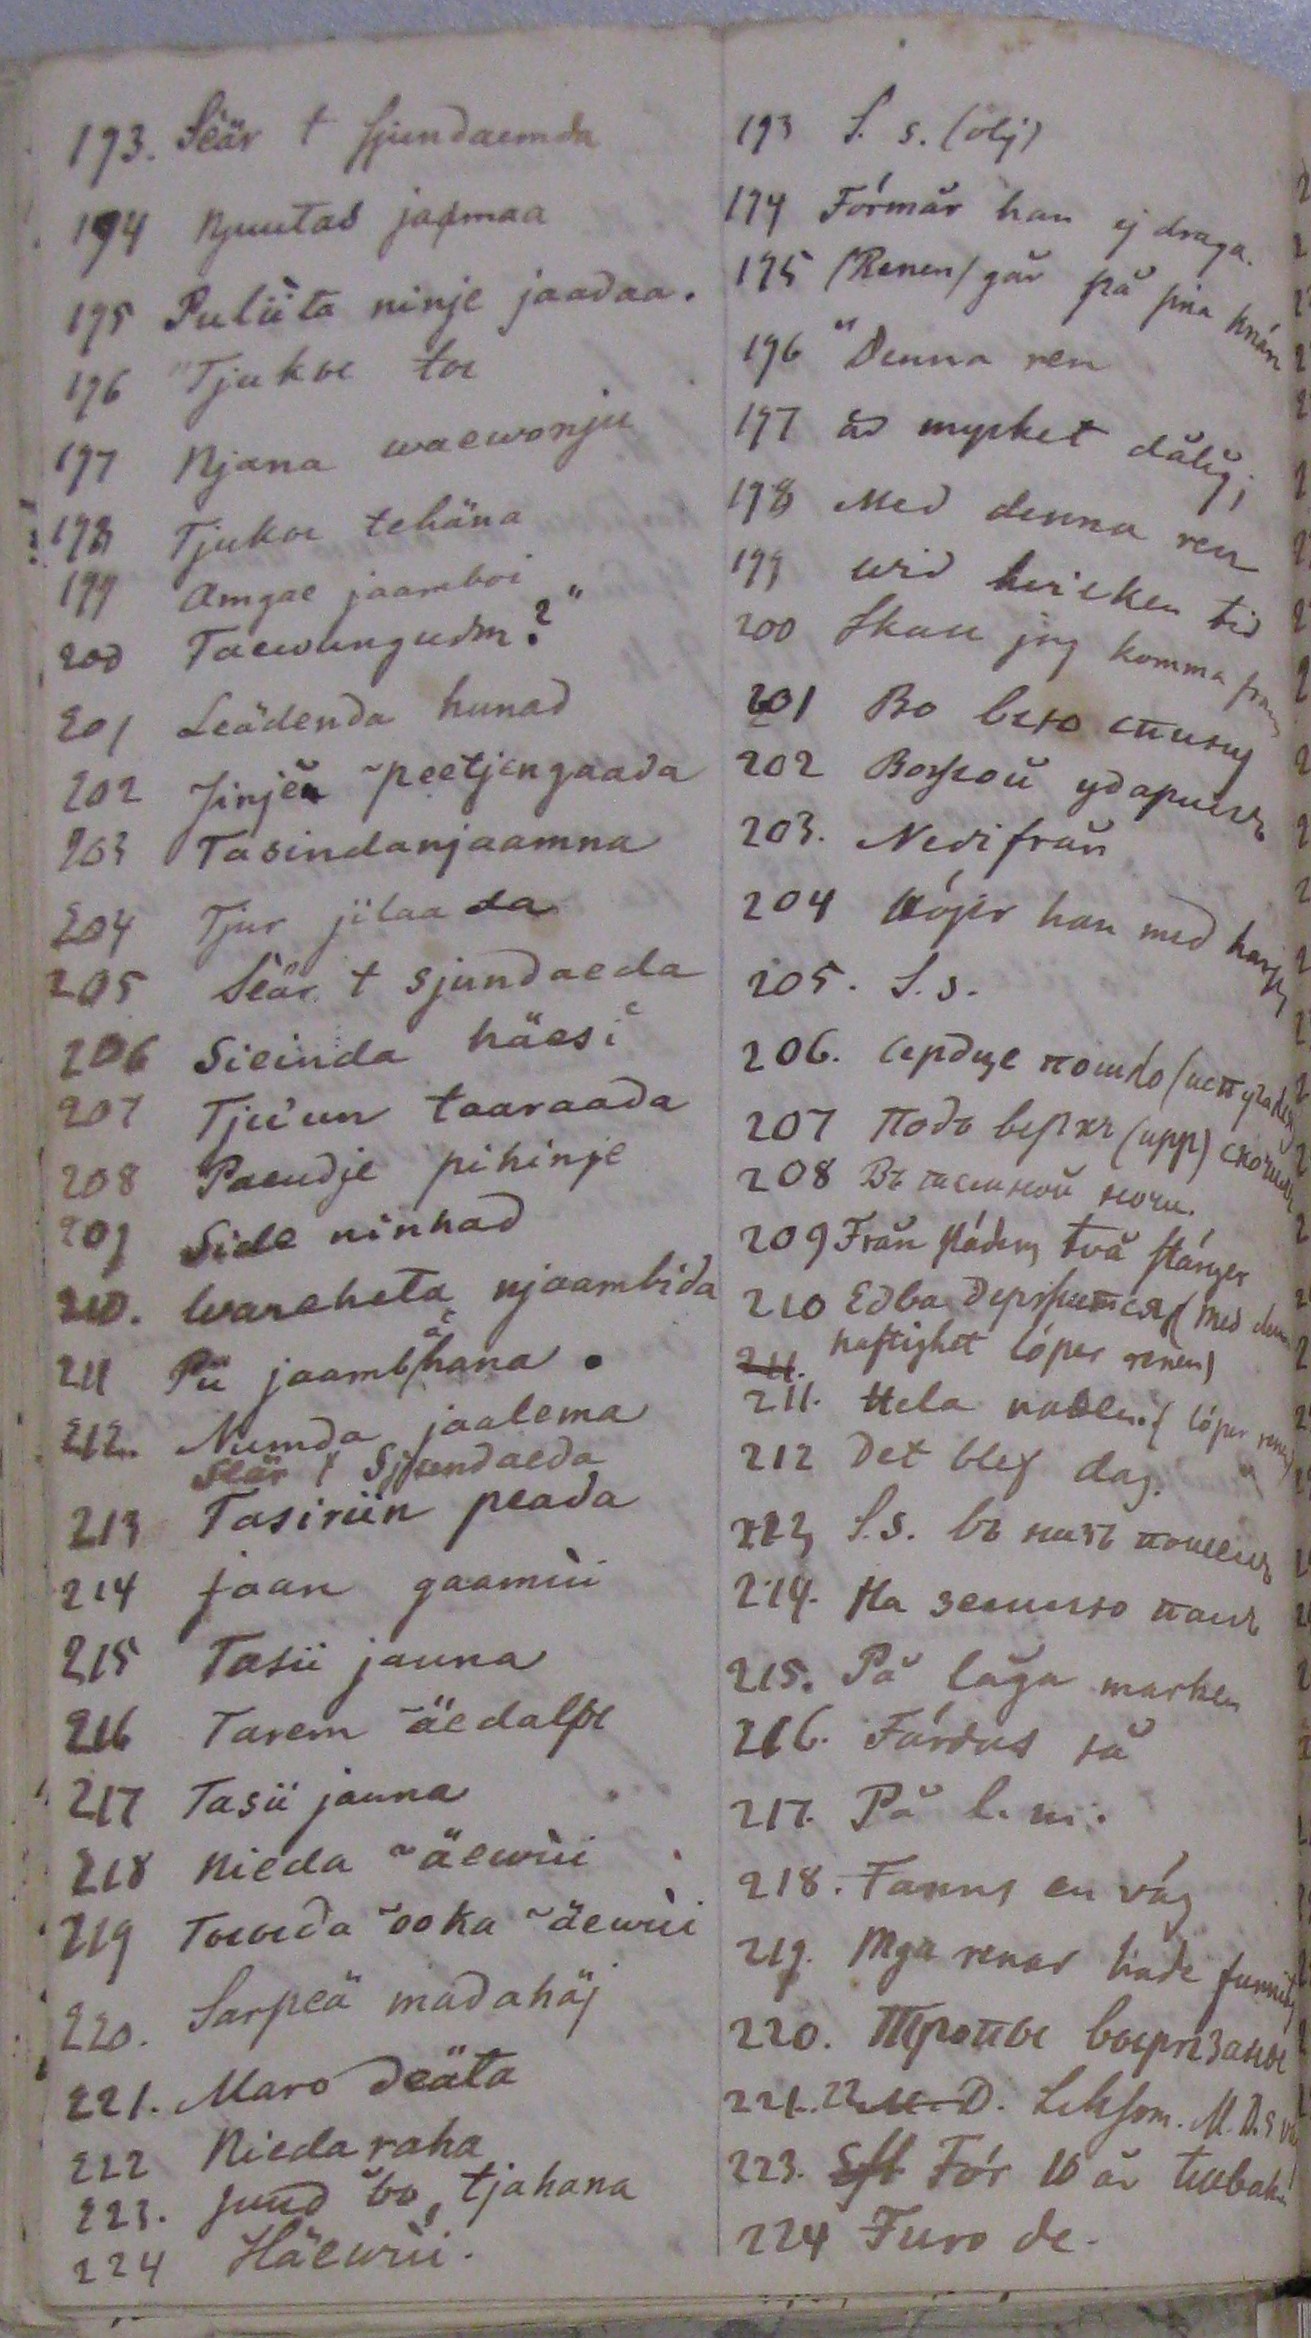 193. Seär t Sjundaemda
194 Njuutad jaamaa
195 Puliita ninje jaadaa.
196 "Tjukoe toe
197 Njana waewonju
198 Tjukoe tehäna
199 Amgae jaamboi
200 Taewungudm?"
201 Leädenda hunad
202 Jinjeä ~peetjengaada
203 Tasindanjaamna
204 Tjur jilaada
205 Seär t sjundaeda
206 Sieinda häesi
207 Tju'un taaraada
208 Paeudje pihinje
209 Side ninhad
210. Warcheta njaambida
211 Pii jaambhana.
212. Numda jaalema
Seär t Sjundaeda
213 Tasiriin peada
214 jaan gaamii
215 Tasii jauna
216 Tarem ~äedalpe
217 Tasii jauna
218 Nieda ~äewii
219 Toeoeda ~ooka ~äewii
220. Sarpeä madahäj
221. Maro Deäta
222 Niedaraha
223. Juud bo, tjahana
224 Häewii.
193 S. s. (olj)
194 Förmår han ej draga.
195 (Renen) går på sina knän
196 "Denna ren
197 är mycket dålig;
198 Med denna ren
199 wid hvilken tid
200 Skall jag komma fram
201 Во всю спину
202 Возжой ударилъ
203. Nedifrån
204 Höjer han med
205. S. s.
206. Сердце пошло (испугался
207 Подъ верхъ (upp) скочилъ
208 Въ темной ночи.
209 Från släden två stänger
210 Едва держится (Med denna
haftighet löper renen)
211. Hela natten. (löper renen)
212 Det blef dag.
213 S. s. въ низъ пошелъ
214. На землю палъ
215. På låga marken
216. Färdas så
217. På l. m.
218. Fanns en väg
219. Mga renar hade funnits
220. Тропы вырезаны
221. 22 M. D. Liksom. M. D.s
223. För 10 år tillbaka
224 Furo de.